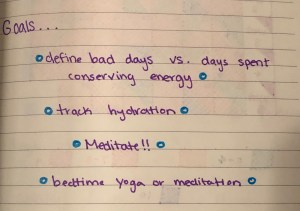 Goals...
define bad days vs. days spent
conserving energy
track hydration
Meditate!!
bedtime yoga or meditation